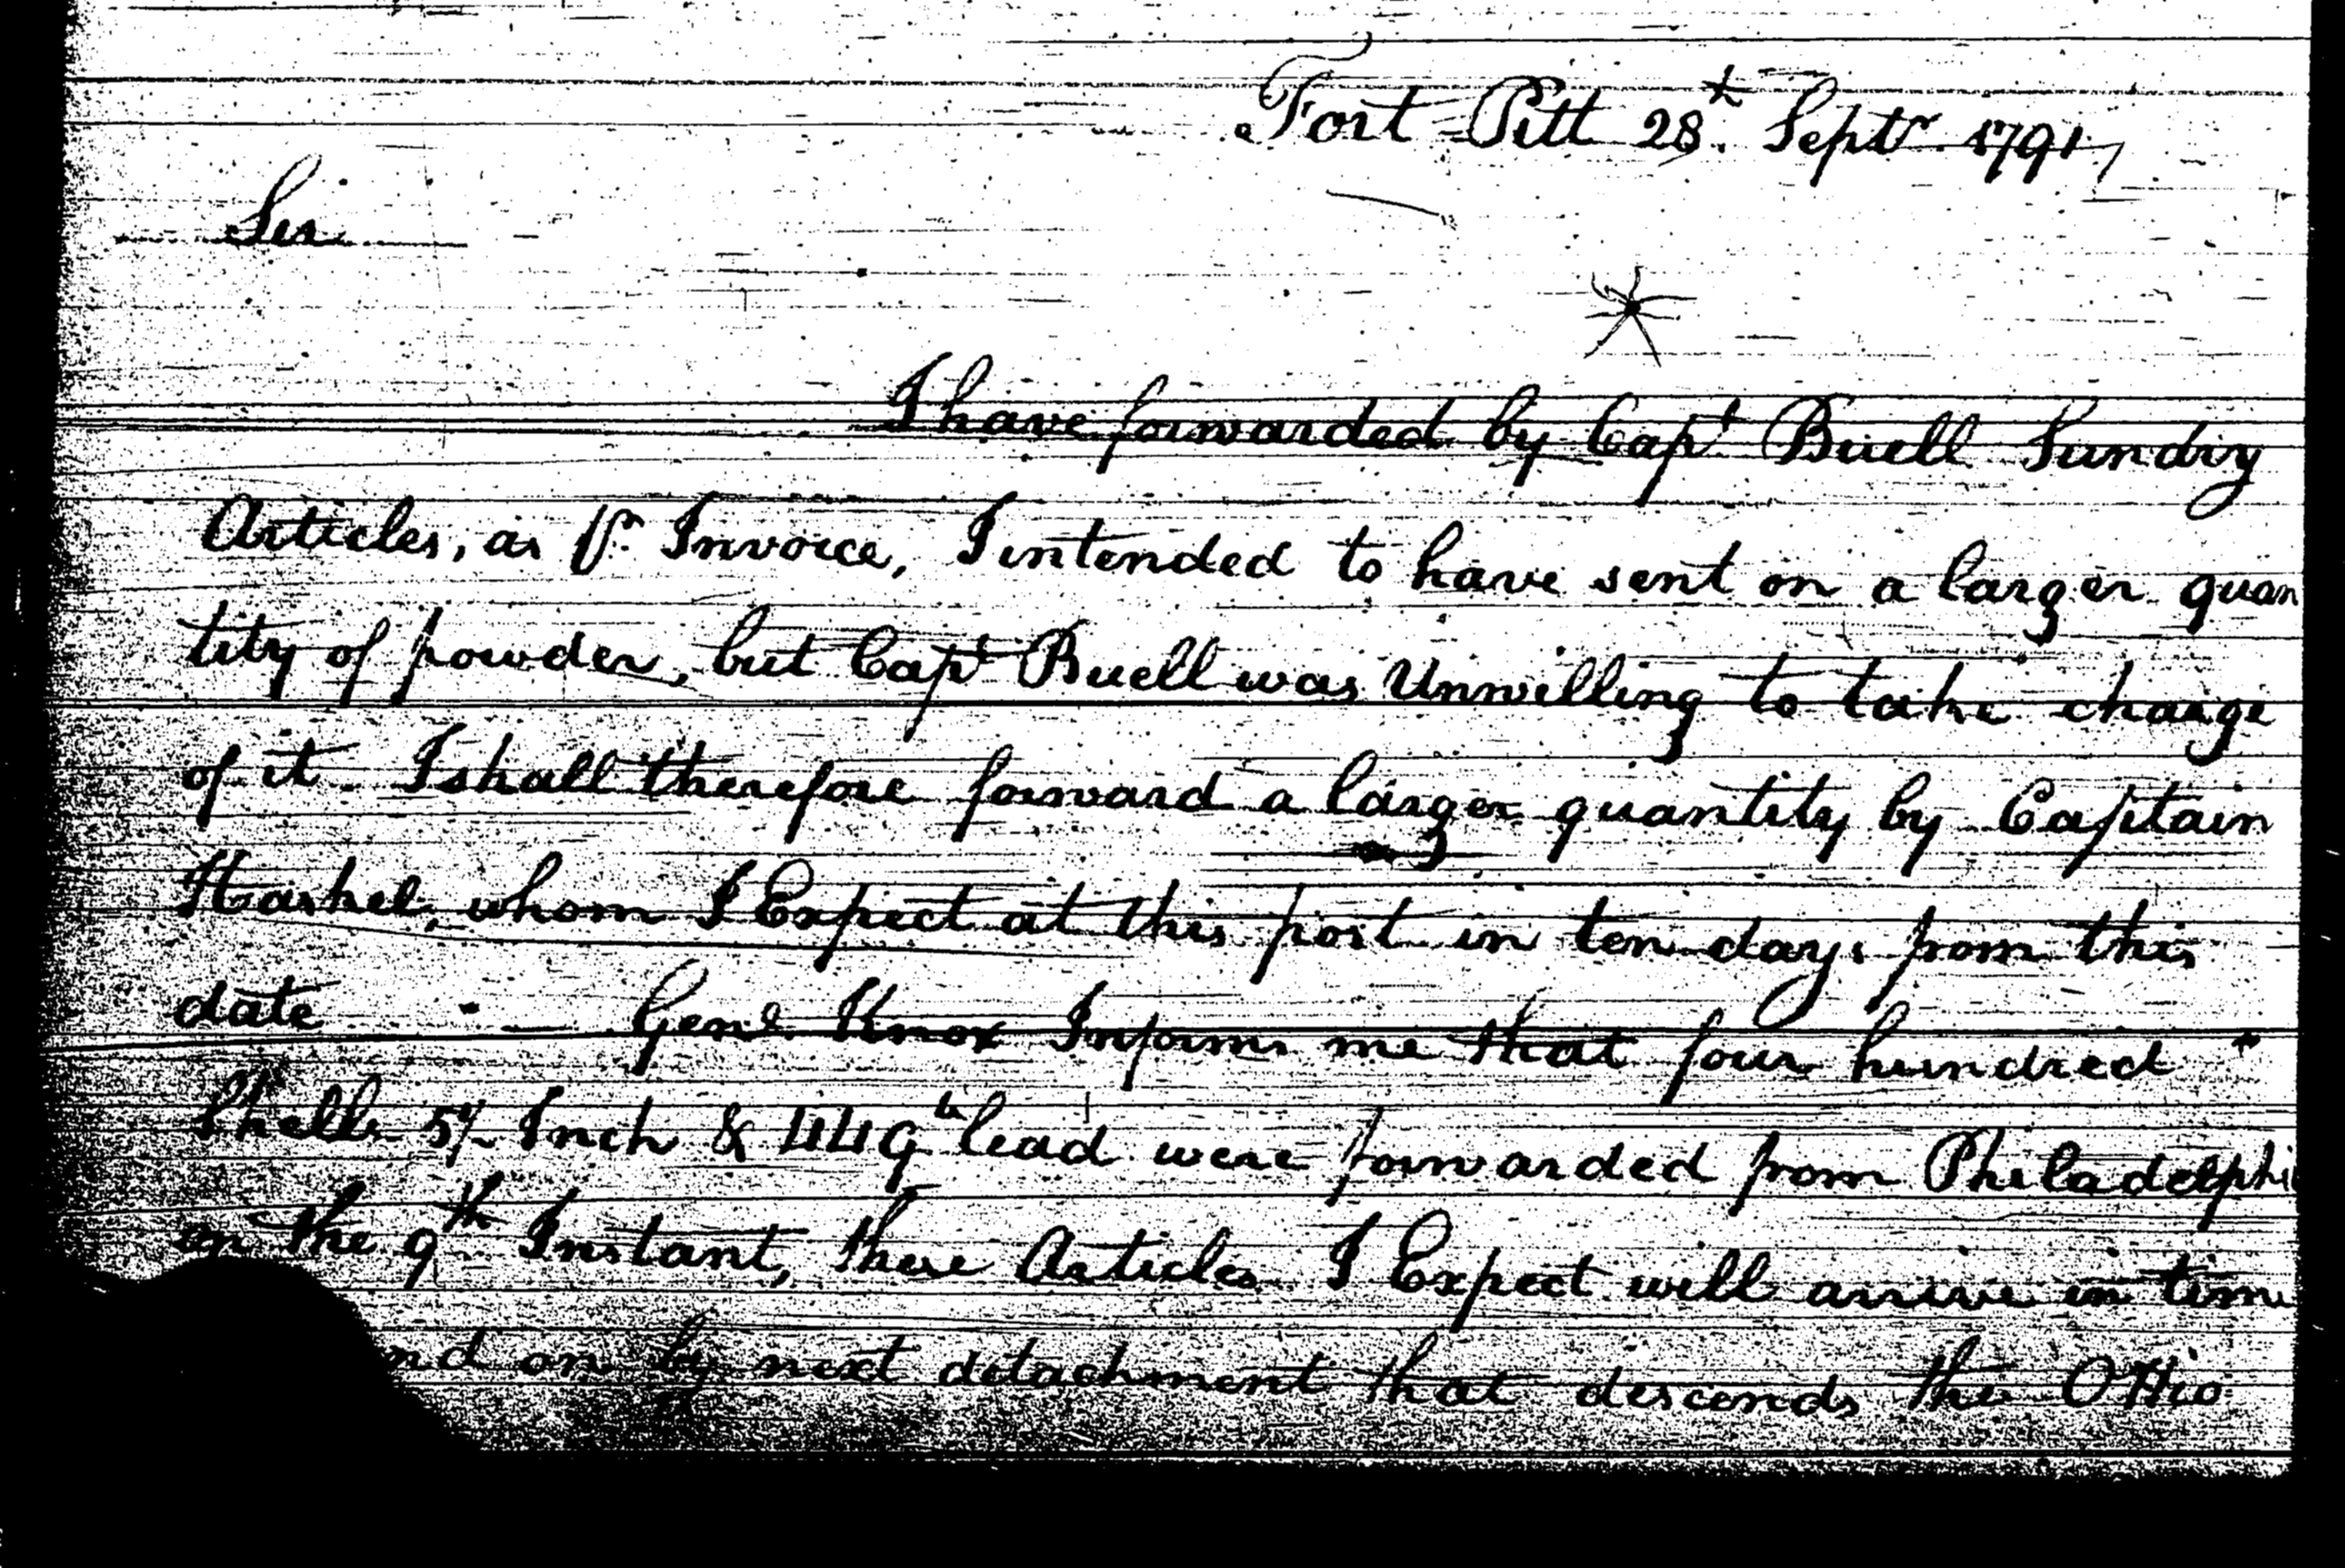 Fort Pitt 28th. Septr. 1791
Sir
I have forwarded by Capt Buell Sundry
Articles, as Pr. Invoice, I intended to have sent on a larger quan
tity of powder, but Capt Buell was Unwilling to take charge
of it. I shall therefore forward a larger quantity by Captain
Haskel, whom I Expect at this post in ten days from this
date — Genl. Knox Informs me that four hundred
Shells 5½ Inch & 449 lb lead were forwarded from Philadelphi
on the 9th Instant, these Articles I Expect will arrive in time
nd on by next detachment that descends the OHio